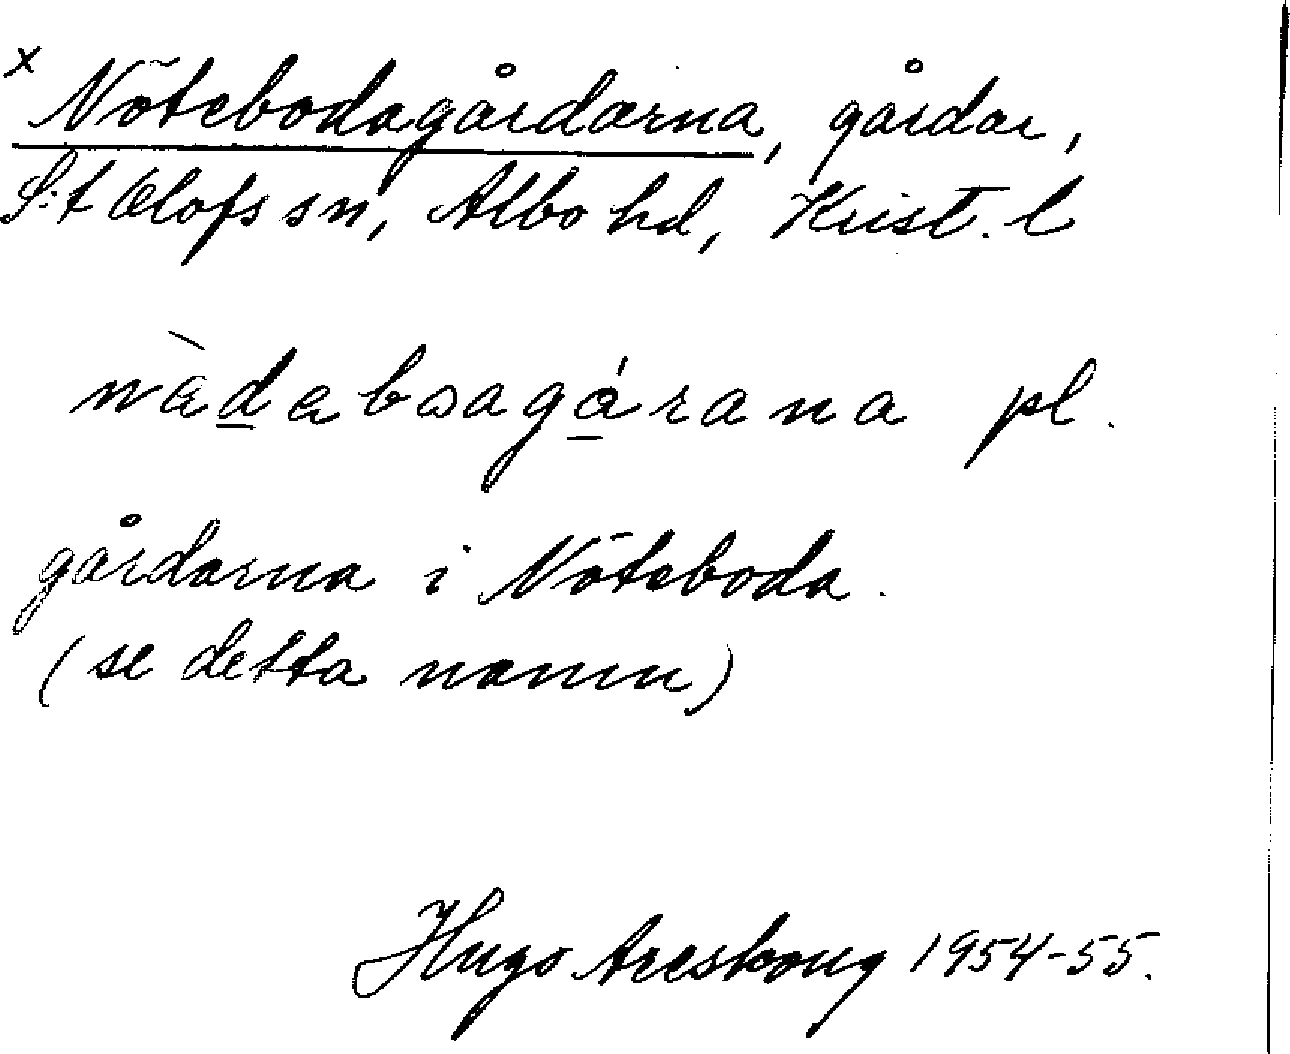 x Nötebodagårdarna, gårdar,
S:t Olofs sn, Albo hd, Krist. l
nàdabosagárana pl.
gårdarna i Nöteboda.
(se detta namn)
Hugo Areskoug 1954-55.